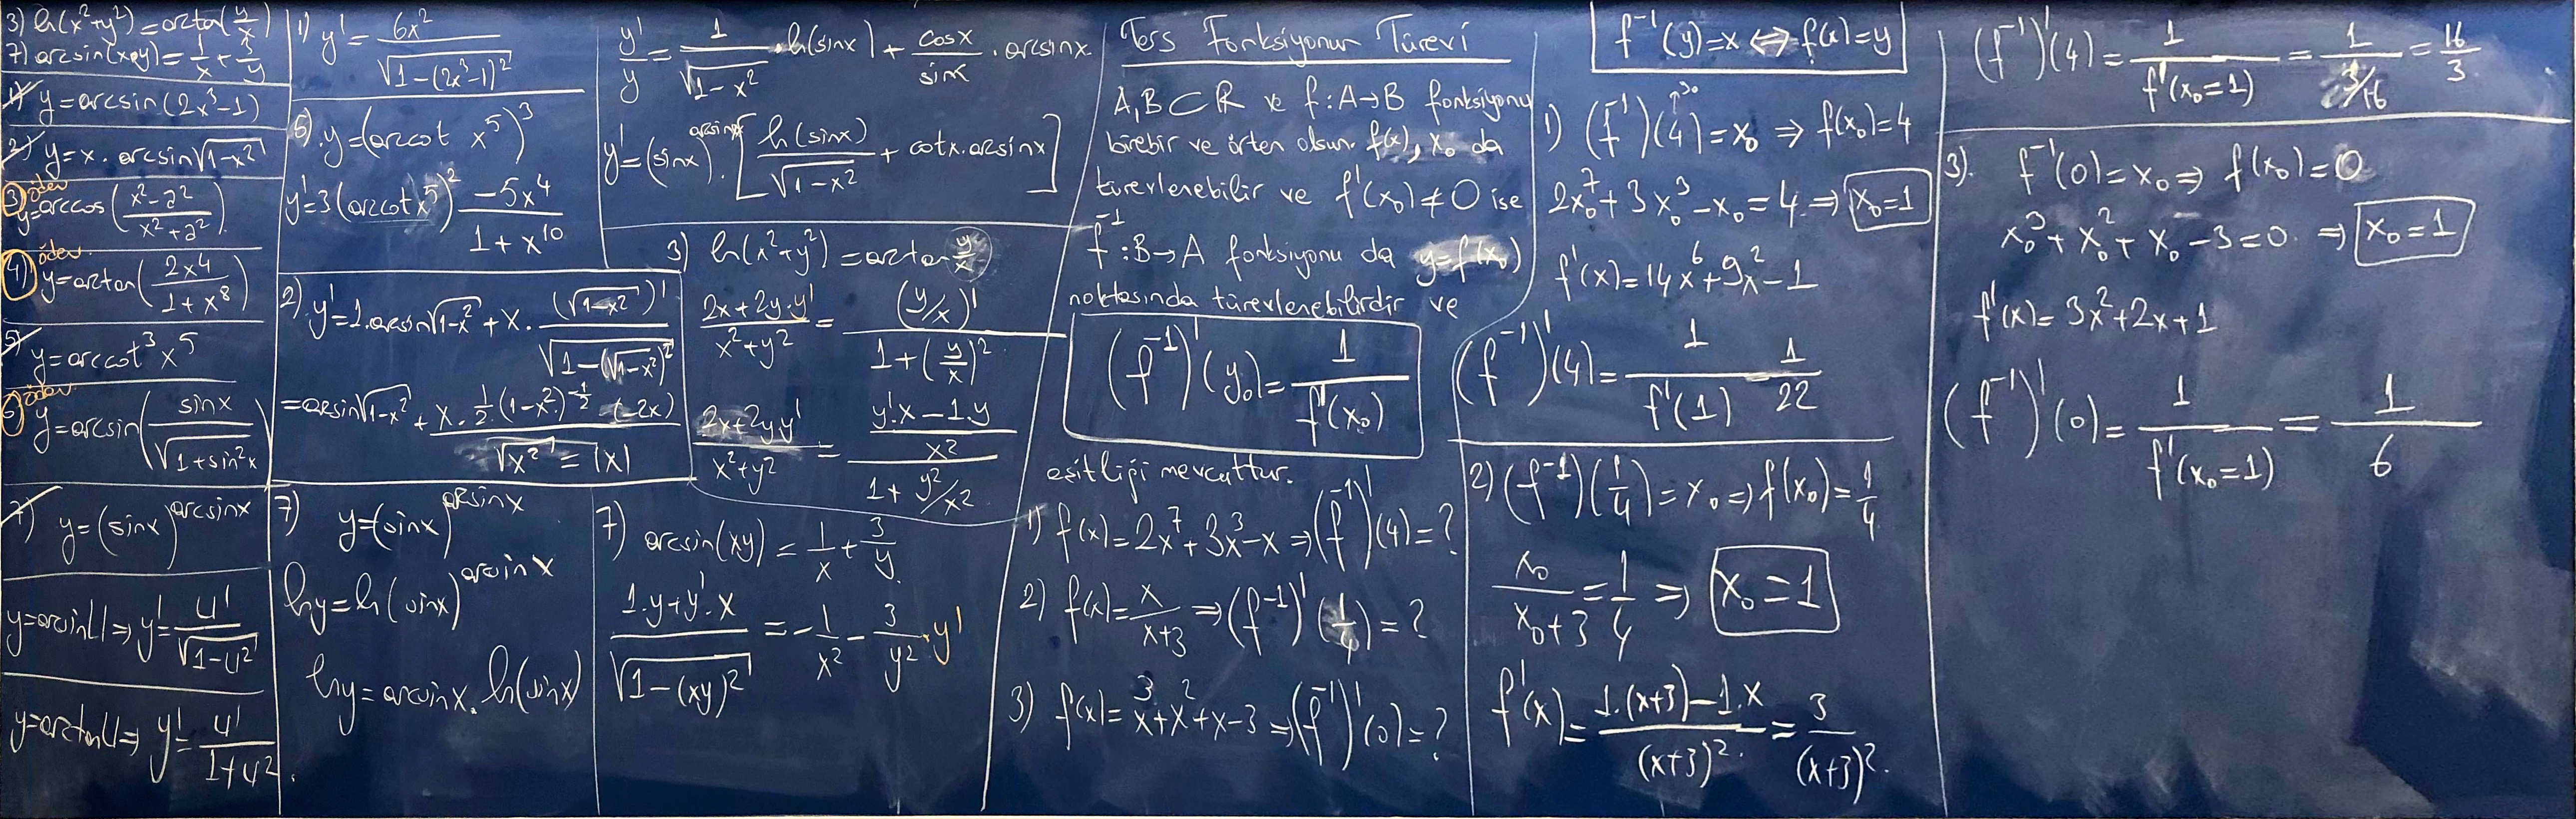 3) ln(x²+y²)=arctan(y/x)
7) arcsin(xy)=1/x+3/y
1) y=arcsin(2x³-1)
2) y=x.arcsin√(1-x²)
ödev
3) y=arccos((x²-a²)/(x²+a²))
ödev
4) y=arctan(2x4/(1+x⁸))
5) y=arccot³x⁵
ödev
6) y=arcsin(sinx/√(1+sin²x))
7) y=(sinx)^arcsinx
y=arcsinU⇒y'=U'/√(1-U²)
y=arctanU⇒y'=U'/(1+U²).
1) y'=6x²/√(1-(2x³-1)²)
5) y=(arccot x⁵)³
y'=3(arccotx⁵)² -5x⁴/(1+x¹⁰)
2) y'=1.arcsin√(1-x²)+x.(√(1-x²))'/√(1-(√(1-x²))²)
=arcsin√(1-x²)+(x.1/2.(1-x²)^(-1/2).(-2x))/(√x²=|x|)
7) y=(sinx)^arcsinx
lny=ln(sinx)^arcsinx
lny=arcsinx.ln(sinx)
y'/y=1/√(1-x²).ln(sinx)+cosx/sinx.arcsinx
y'=(sinx)^arcsinx.[ln(sinx)/√(1-x²)+cotx.arcsinx]
3) ln(x²+y²)=arctan y/x
(2x+2y.y')/(x²+y²)=(y/x)'/(1+(y/x)²)
(2x+2y.y')/(x²+y²)=((y'.x-1.y)/x²)/(1+y²/x²)
7) arcsin(xy)=1/x+3/y.
(1.y+y'.x)/√(1-(xy)²)=-1/x²-3/y².y'
Ters Fonksiyonun Türevi
A,B⊂R ve f:A→B fonksiyonu
birebir ve örten olsun. f(x), x₀ da
türevlenebilir ve f'(x₀)≠0 ise
f⁻¹:B→A fonksiyonu da y=f(x₀)
noktasında türevlenebilirdir ve
(f⁻¹)'(y₀)=1/f'(x₀)
eşitliği mevcuttur.
1) f(x)=2x⁷+3x³-x⇒(f⁻¹)'(4)=?
2) f(x)=x/(x+3)⇒(f⁻¹)'(1/4)=?
3) f(x)=x³+x²+x-3⇒(f⁻¹)'(0)=?
f⁻¹(y)=x⇔f(x)=y
y₀
1) (f⁻¹)(4)=x₀⇒f(x₀)=4
2x₀⁷+3x₀³-x₀=4.⇒x₀=1
f'(x)=14x⁶+9x²-1
(f⁻¹)'(4)=1/f'(1)=1/22
2) (f⁻¹)(1/4)=x₀⇒f(x₀)=1/4
x₀/(x₀+3)=1/4⇒x₀=1
f'(x)=(1.(x+3)-1.x)/(x+3)².=3/(x+3)².
(f⁻¹)'(4)=1/f'(x₀=1)=1/(3/16)=16/3
3). f⁻¹(0)=x₀⇒f(x₀)=0
x₀³+x₀²+x₀-3=0.⇒x₀=1
f'(x)=3x²+2x+1
(f⁻¹)'(0)=1/f'(x₀=1)=1/6